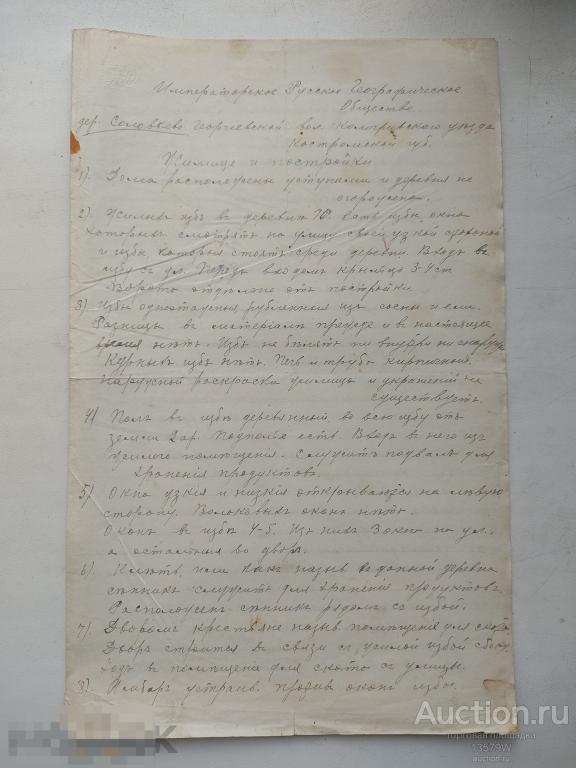 Императорское Русское Географическое
Общество
дер. Соловьево Георгиевской вол. Костромского уѣзда
Костромской губ.
Жилище и постройки
1). Дома расположены уступами и деревня не
огорожена.
2). Жилыхъ избъ въ деревнѣ 70. есть избы, окна
которыхъ смотрятъ на улицу своей узкой стороной
и избы, которыя стоятъ среди деревни. Входъ въ
избу съ ул. Передъ входомъ крыльцо 3-4 ст
Ворота отдѣльно отъ постройки
3) Избы одноэтажныя, рубленныя изъ сосны и ели.
Разницы въ матеріалѣ прежде и въ настоящее
время нѣтъ. Избъ не бѣлятъ ни внутри ни снаружи
Курныхъ избъ нѣтъ. Печь и трубы кирпичныя.
Наружной раскраски жилищъ и украшеній не
существуетъ.
4) Полъ въ избѣ деревянный, во всю избу отъ
земли 2 ар. Подполье есть. Входъ въ него изъ
жилого помѣщенія. Служитъ подвалъ для
храненія продуктовъ.
5) Окна узкія и низкія открываются на лѣвую
сторону. Волоковыхъ оконъ нѣтъ.
Оконъ въ избѣ 4-5. Изъ нихъ 3 окна на ул.,
а остальныя во дворъ.
6) Клѣть, или какъ назыв въ данной деревнѣ
сѣнникъ служитъ для храненія продуктовъ.
Расположенъ сѣнникъ рядомъ съ избой.
7) Дворомъ крестьяне назыв помѣщеніе для скота
Дворъ строится въ связи съ жилой избой сбоку
въ помѣщеніе для скота съ улицы.
8) Амбаръ устраив. противъ оконъ избы.
Auction.ru
торговая площадка
13579W
auction.ru